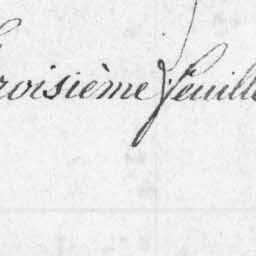 troisième feuille